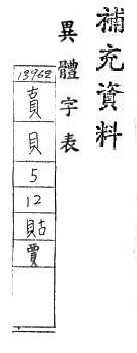 補充資料
異體字表
13962
貝
5
12
賈